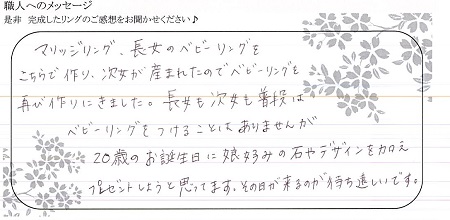 職人へのメッセージ
是非 完成したリングのご感想をお聞かせください♪
マリッジリング、長女のベビーリングを
こちらで作り、次女が産まれたのでベビーリングを
再び作りにきました。長女も次女も普段は
ベビーリングをつけることはありませんが
20歳のお誕生日に娘好みの石やデザインを加え
プレゼントしようと思ってます。その日が来るのが待ち遠しいです。